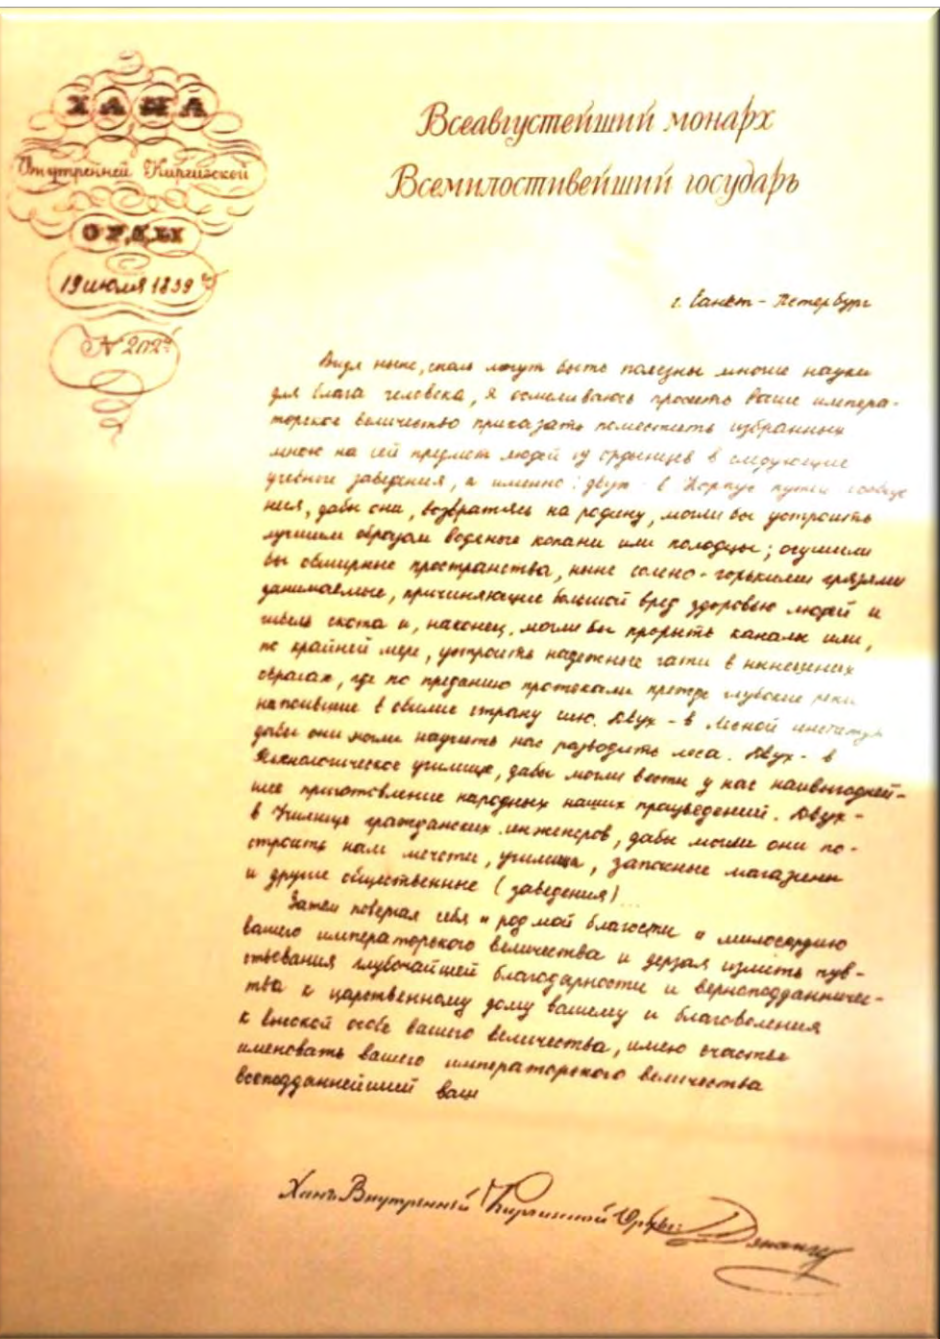 ХАНА
Внутренней Киргизской
ОРДЫ
19 июля 1839 г
№ 202
Всеавгустейший монарх
Всемилостивейший государь
г. Санкт-Петербург
Видя ныне, столь могут быть полезны многие науки
для блага человека, я осмеливаюсь просить ваше импера-
торское величество приказать поместить избранных
мною на сей предмет людей из ордынцев в следующие
учебные заведения, а именно: двух - в Корпус путей сообще
ния, дабы они, возвратясь на родину, могли бы устроить
лучшим образом водяные копани или колодцы; осушили
бы обширные пространства, ныне солено-горькими грязями
занимаемые, причиняющие большой вред здоровью людей и
гибель скота и, наконец, могли бы прорыть каналы или,
по крайней мере, устроить надежные гати в нынешних
оврагах, где по преданию протекали прежде глубокие реки
напоившие в обилие страну сию. Двух - в Лесной институт
дабы они могли научить нас разводить леса. Двух - в
Технологическое училище, дабы могли ввести у нас наивыгодней-
шее приготовление народных наших произведений. Двух -
в Училище гражданских инженеров, дабы могли они по-
строить нам мечети, училища, запасные магазины
и другие общественные (заведения)...
Затем повергая себя и род мой благости и милосердию
вашего императорского величества и дерзая излить чув-
ствования глубочайшей благодарности и верноподданничес-
тва к царственному дому вашему и благоволения
к высокой особе вашего величества, имею счастье
именовать вашего императорского величества
всеподданнейший ваш
Ханъ Внутренней Киргизской Орды: Джангир